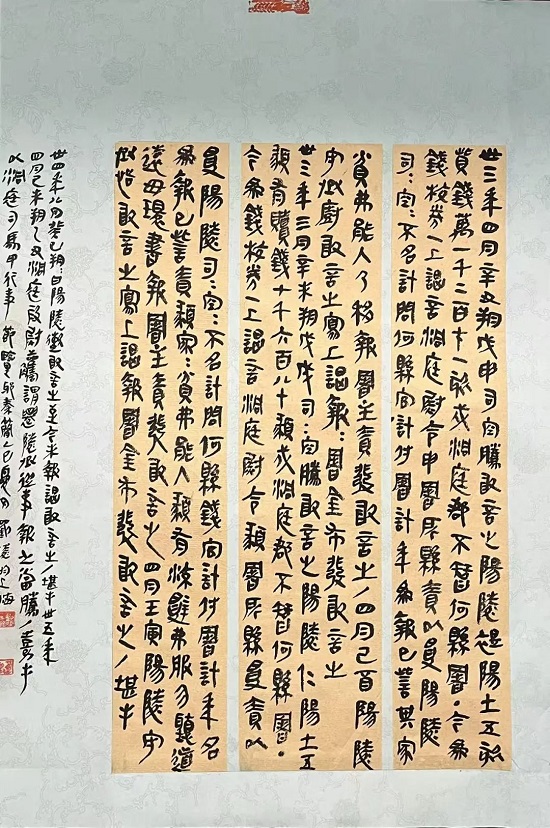 卅三年四月辛丑朔戊申司空騰敢言之陽陵褆陽士五敀
貲錢萬一千二百七十一敀戍洞庭郡不智何縣署·今為
錢校券一上謁言洞庭尉令申署所縣責以受陽陵
司=空=不名計問何縣官計付署計年為報已訾其家
貧弗能入乃移報署主責發敢言之/四月己酉陽陵
守丞廚敢言之寫上謁報=署金布發敢言之
卅三年三月辛未朔戊戌司=空騰敢言之陽陵仁陽士五
頯有贖錢七千六百八十頯戍洞庭郡不智何縣署·
今為錢校券一上謁言洞庭尉令頯署所縣受責以
受陽陵司=空=不名計問何縣錢官計付署計年名
為報已訾責頯家=貧弗能入頯有流辭弗服勿聽道
遠毋環書報署主責發敢言之/四月壬寅陽陵守
丞恬敢言之寫上謁報署金布發敢言之/堪手
卅四年八月癸巳朔=日陽陵遬敢言之至今未報謁敢言之/堪手卅五年
四月己未朔乙丑洞庭叚尉觿謂遷陵丞從事報之當騰=嘉手
以洞庭司馬印行事 節臨里耶秦簡乙巳夏月 上海